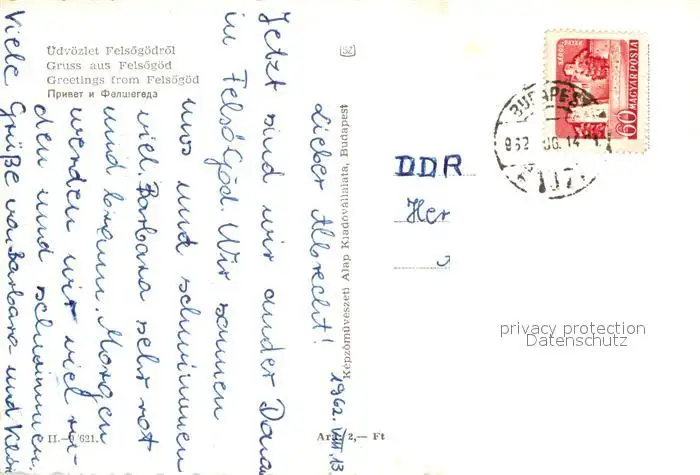 Üdvözlet Felsőgödről
Gruss aus Felsőgöd
Greetings from Felsőgöd
Привет и Фелшегеда
Lieber Albrecht!
1962. VIII. 13.
Jetzt sind wir an der
in Felsőgöd. Wir sonnen
uns und schwimmen
viel. Barbara sehr rot
und braun. Morgen
werden wir viel
den und schwimmen.
Viele Grüße von Barbara und
Képzőművészeti Alap Kiadóvállalata, Budapest
52
II.—9/621.
Ára: 2,— Ft
SÁROS-PATAK
60
MAGYAR POSTA
BUDAPEST
962
UG. 14
DDR
Her
privacy protection
Datenschutz